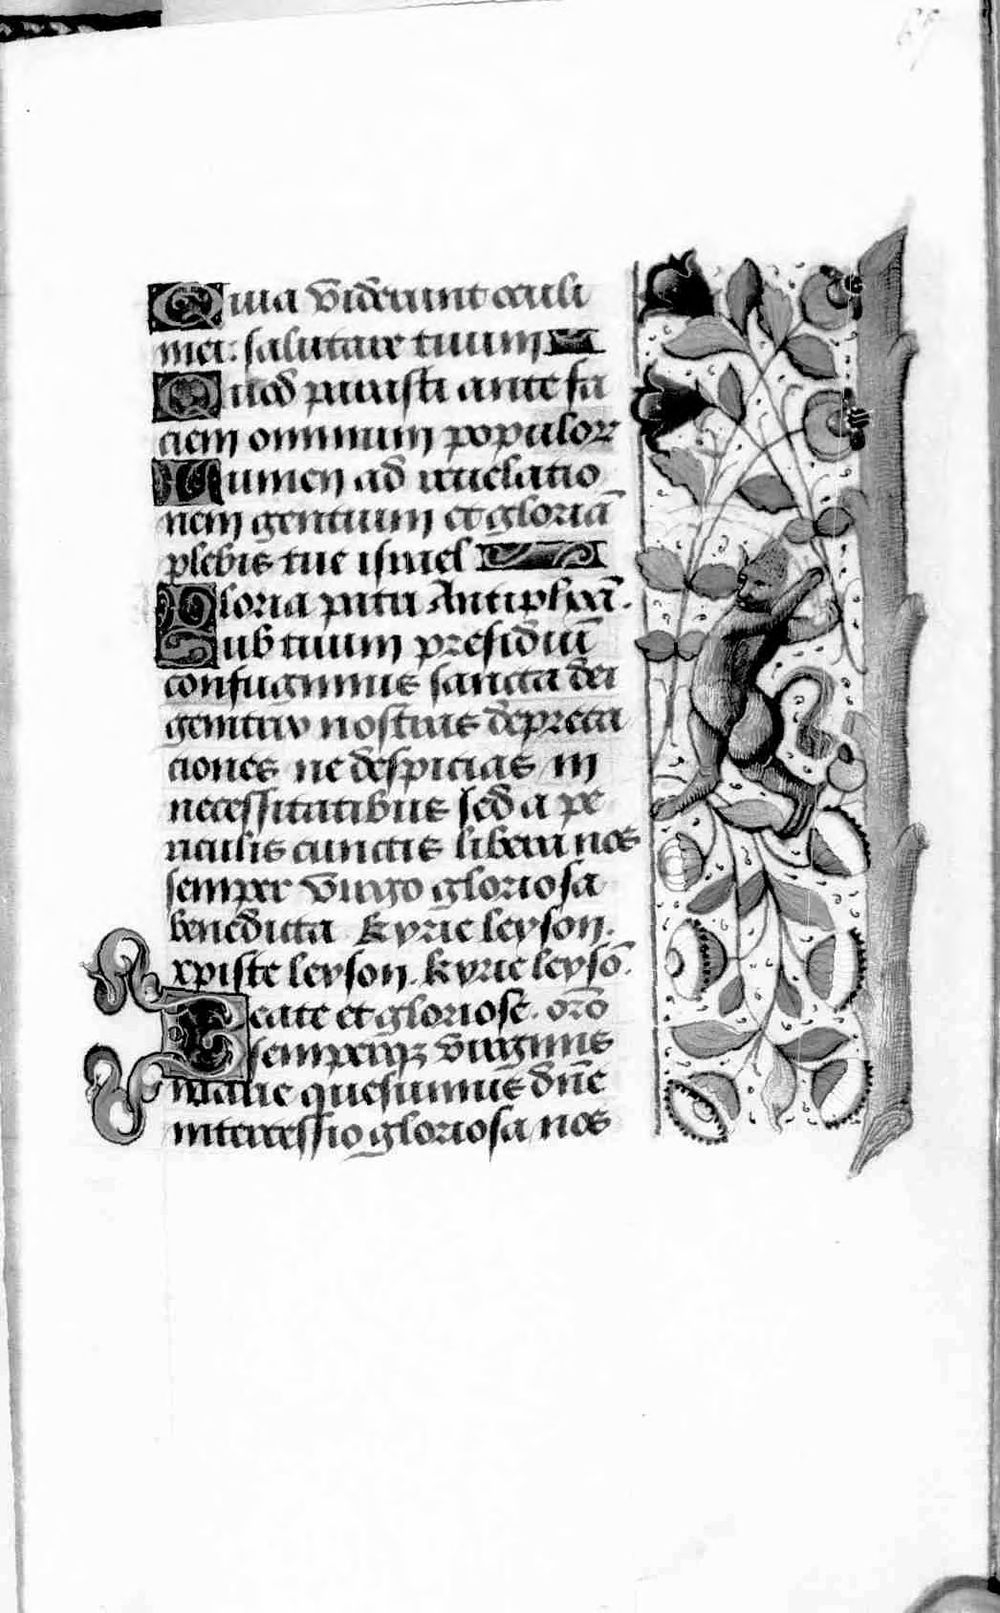 Quia viderunt oculi
mei: salutare tuum
Quod parasti ante fa
ciem omnium populor
Lumen ad reuelatio
nem gentium et gloriā
plebis tue israel
Gloria patri Antiphoā.
Sub tuum presidiū
confugimus sancta dei
genitrix nostras depreca
ciones ne despicias in
necessitatibus sed a pe
riculis cunctis libera nos
semper virgo gloriosa
benedicta Kyrie leyson.
xpiste leyson. kyrie leysō.
Beate et gloriose. orō
semperqz virginis
marie quesumus dn̄e
intercessio gloriosa nos